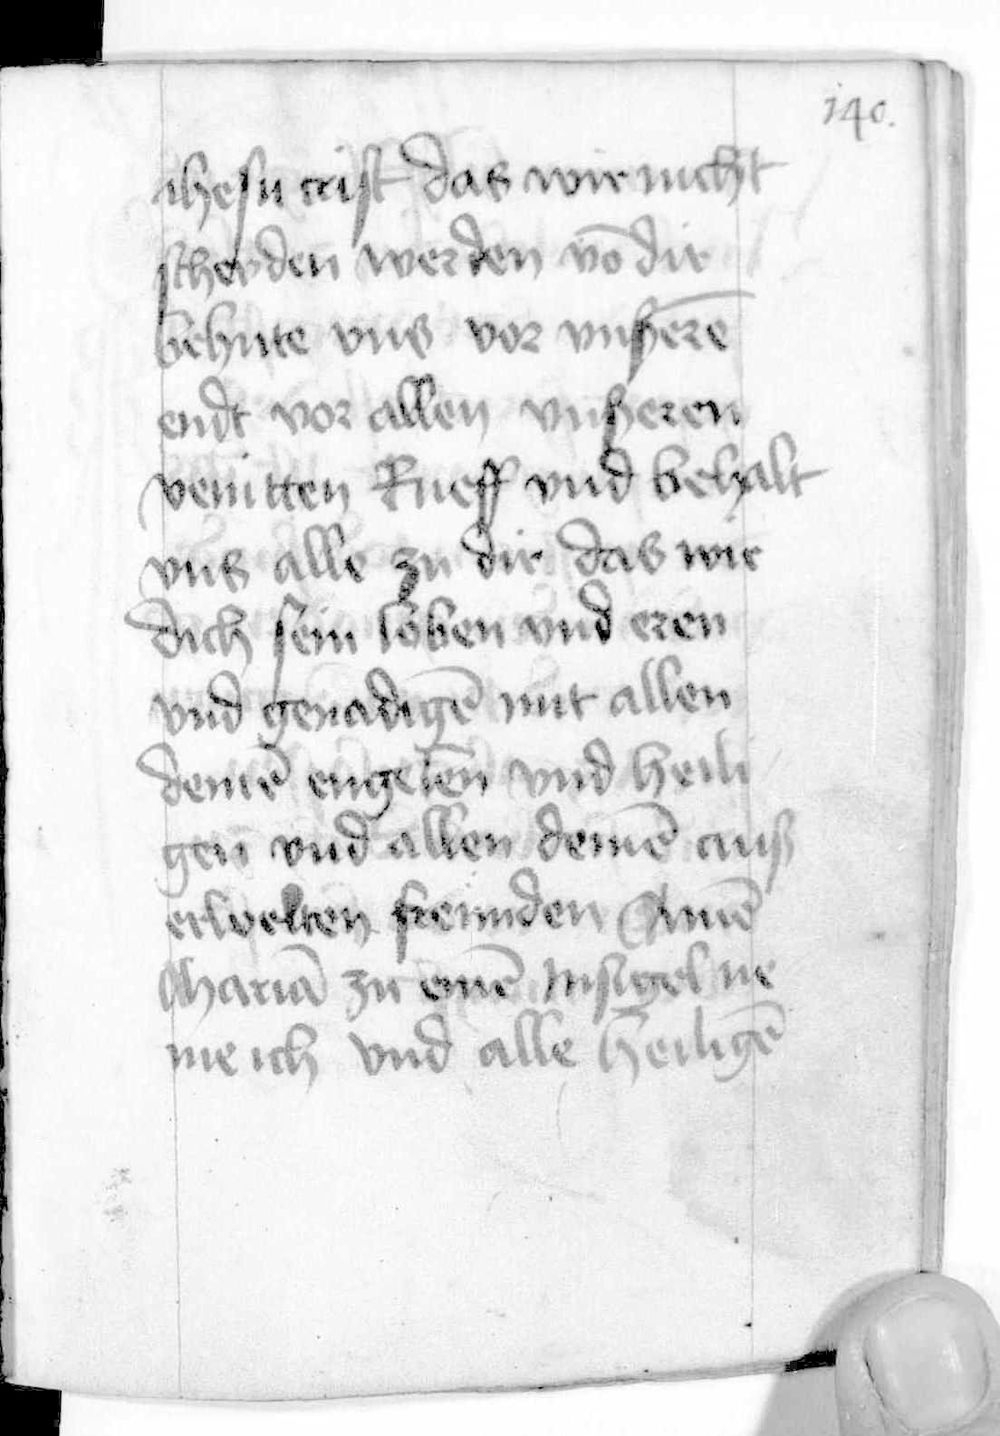 140.
ihesu crist das wir nicht
scheyden werden võ dir
behute vns vor vnßerē
endt vor allen vnßeren
veintten Rueff vnd behalt
vns alle zu dir das wir
dich sein loben vnd eren
vnd genadigē mit allen
deinē engelen vnd heili
gen vnd allen deinē auß
erwelten freunden Amē
Mariā zu einē Insigel ne
me ich vnd alle heiligē